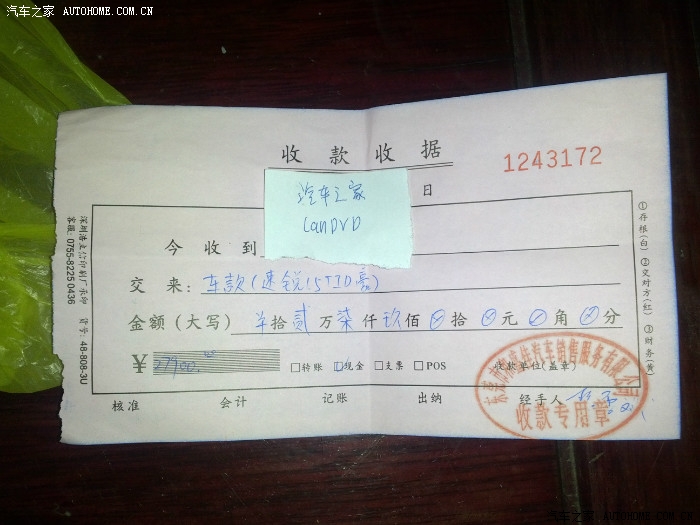 汽车之家 AUTOHOME.COM.CN
收款收据
1243172
日
汽车之家
LanDVD
今收到
交来: 车款(速锐1.5TID豪)
金额(大写) 拾贰万柒仟玖佰⊗拾⊗元⊗角⊗分
¥ 27900.00 □转账 ☑现金 □支票 □POS 收款单位(盖章)
核准 会计 记账 出纳 经手人
汽车销售服务有限公司
收款专用章
①存根(白) ②交对方(红) ③财务(黄)
客服: 0755-8225 0436 货号: 48-808-3U
汽车之家 AUTOHOME.COM.CN